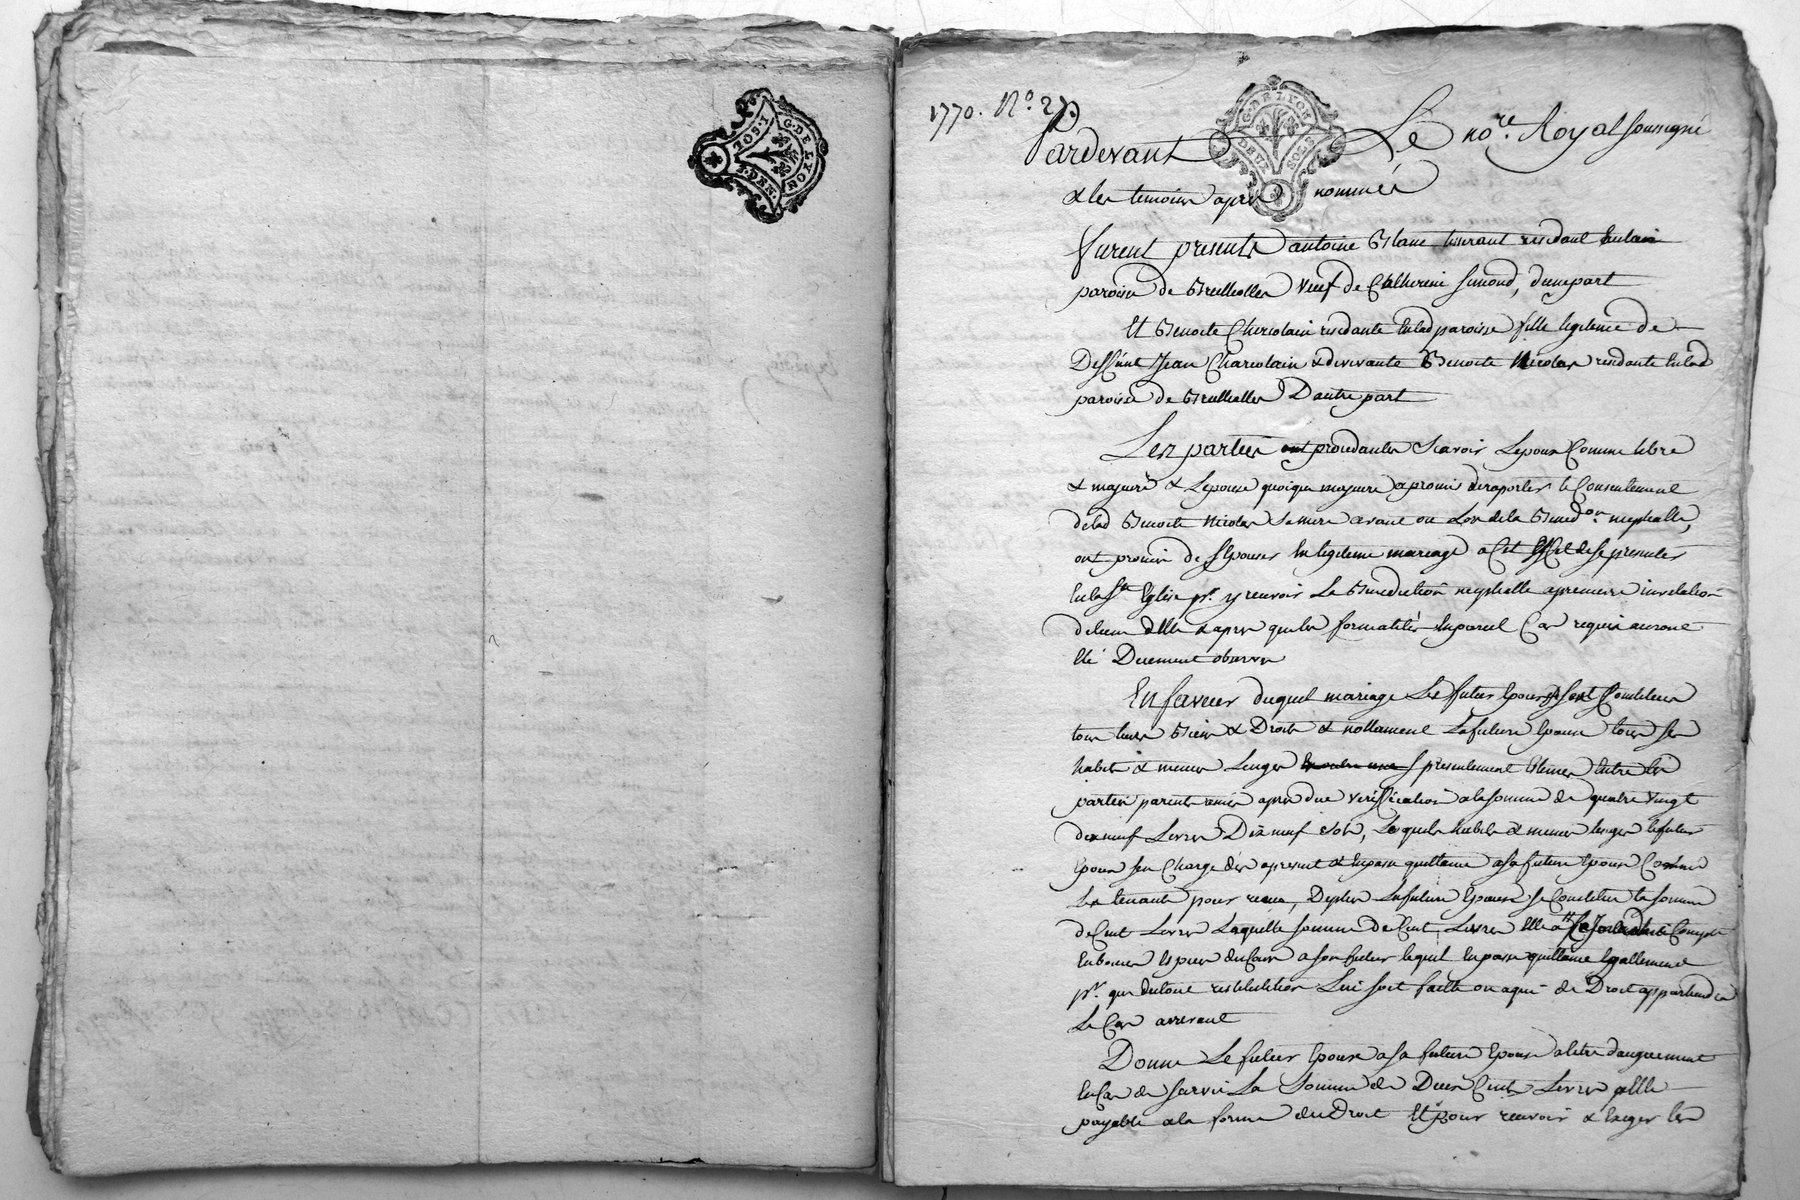 G. DE LYON
1 SOL. 1
1. DEN.
1770. No. 27.
G. DE LYON
DEUX SOLS
Pardevant Le no.re Royal soussigné
& les temoins apres nommés
furent presents antoine Blanc residant
paroisse de Brullioles veuf de Catherine Simond, dune part
Et Benoite residante en lad paroisse fille legitime de
Deffunt Jean & de vivante Benoite Nicolas residante en lad
paroisse de Brullioles D'autre part
Les parties procedantes scavoir Lepoux Comme libre
& majeur & Lepouse quoique majeure a promis de raporter le Consentement
de lad Benoite Nicolas sa mere avant ou Lors de la Bened.on nuptialle,
ont promis de sEpouser En legitime mariage a Cet Effet de se presenter
En la Ste Eglise pr. y recevoir La Benediction nuptialle a premiere
de lune delle & apres que les formalités En pareil Cas requis auront
Eté Duement observés
En faveur duquel mariage Les futurs Epoux se sont Constitués
tous leurs Biens & Droits & nottament La future Epouse tous ses
habits & menus Linges presentement Estimés Entre les
parties parents amis apres due veriffication a la somme de quatre vingt
dix neuf Livres Dix neuf sols, Lesquels habits & menus linges le futur
Epoux sen Charge des apresent & En passe quittance a sa future Epouse Comme
Les tenants pour reçus, De plus La future Epouse se Constitue la somme
de Cent Livres Laquelle somme de Cent Livres Elle a Compté
En bonnes Especes du Cours a son futur lequel En passe quittance Egallement
pr. que du tout restitution Lui soit faitte ou a qui de Droit appartiendra
Le Cas arrivant
Donne Le futur Epoux a sa future Epouse a titre d'augment
En Cas de survie La Somme de Deux Cents Livres
payable a la forme du Droit Et pour recevoir & Exiger les